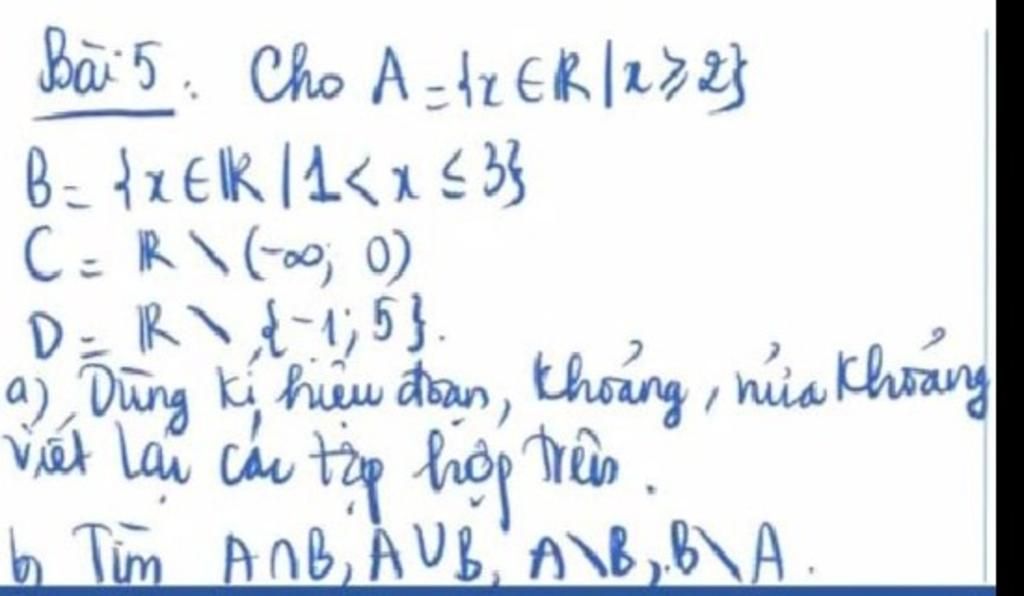 Bài 5. Cho A = {x ∈ ℝ | x ⩾ 2}
B = {x ∈ ℝ | 1 < x ≤ 3}
C = ℝ \ (-∞; 0)
D = ℝ \ {-1; 5}.
a) Dùng kí hiệu đoạn, khoảng, nửa khoảng
viết lại các tập hợp trên.
b) Tìm A∩B, A∪B, A\B, B\A.